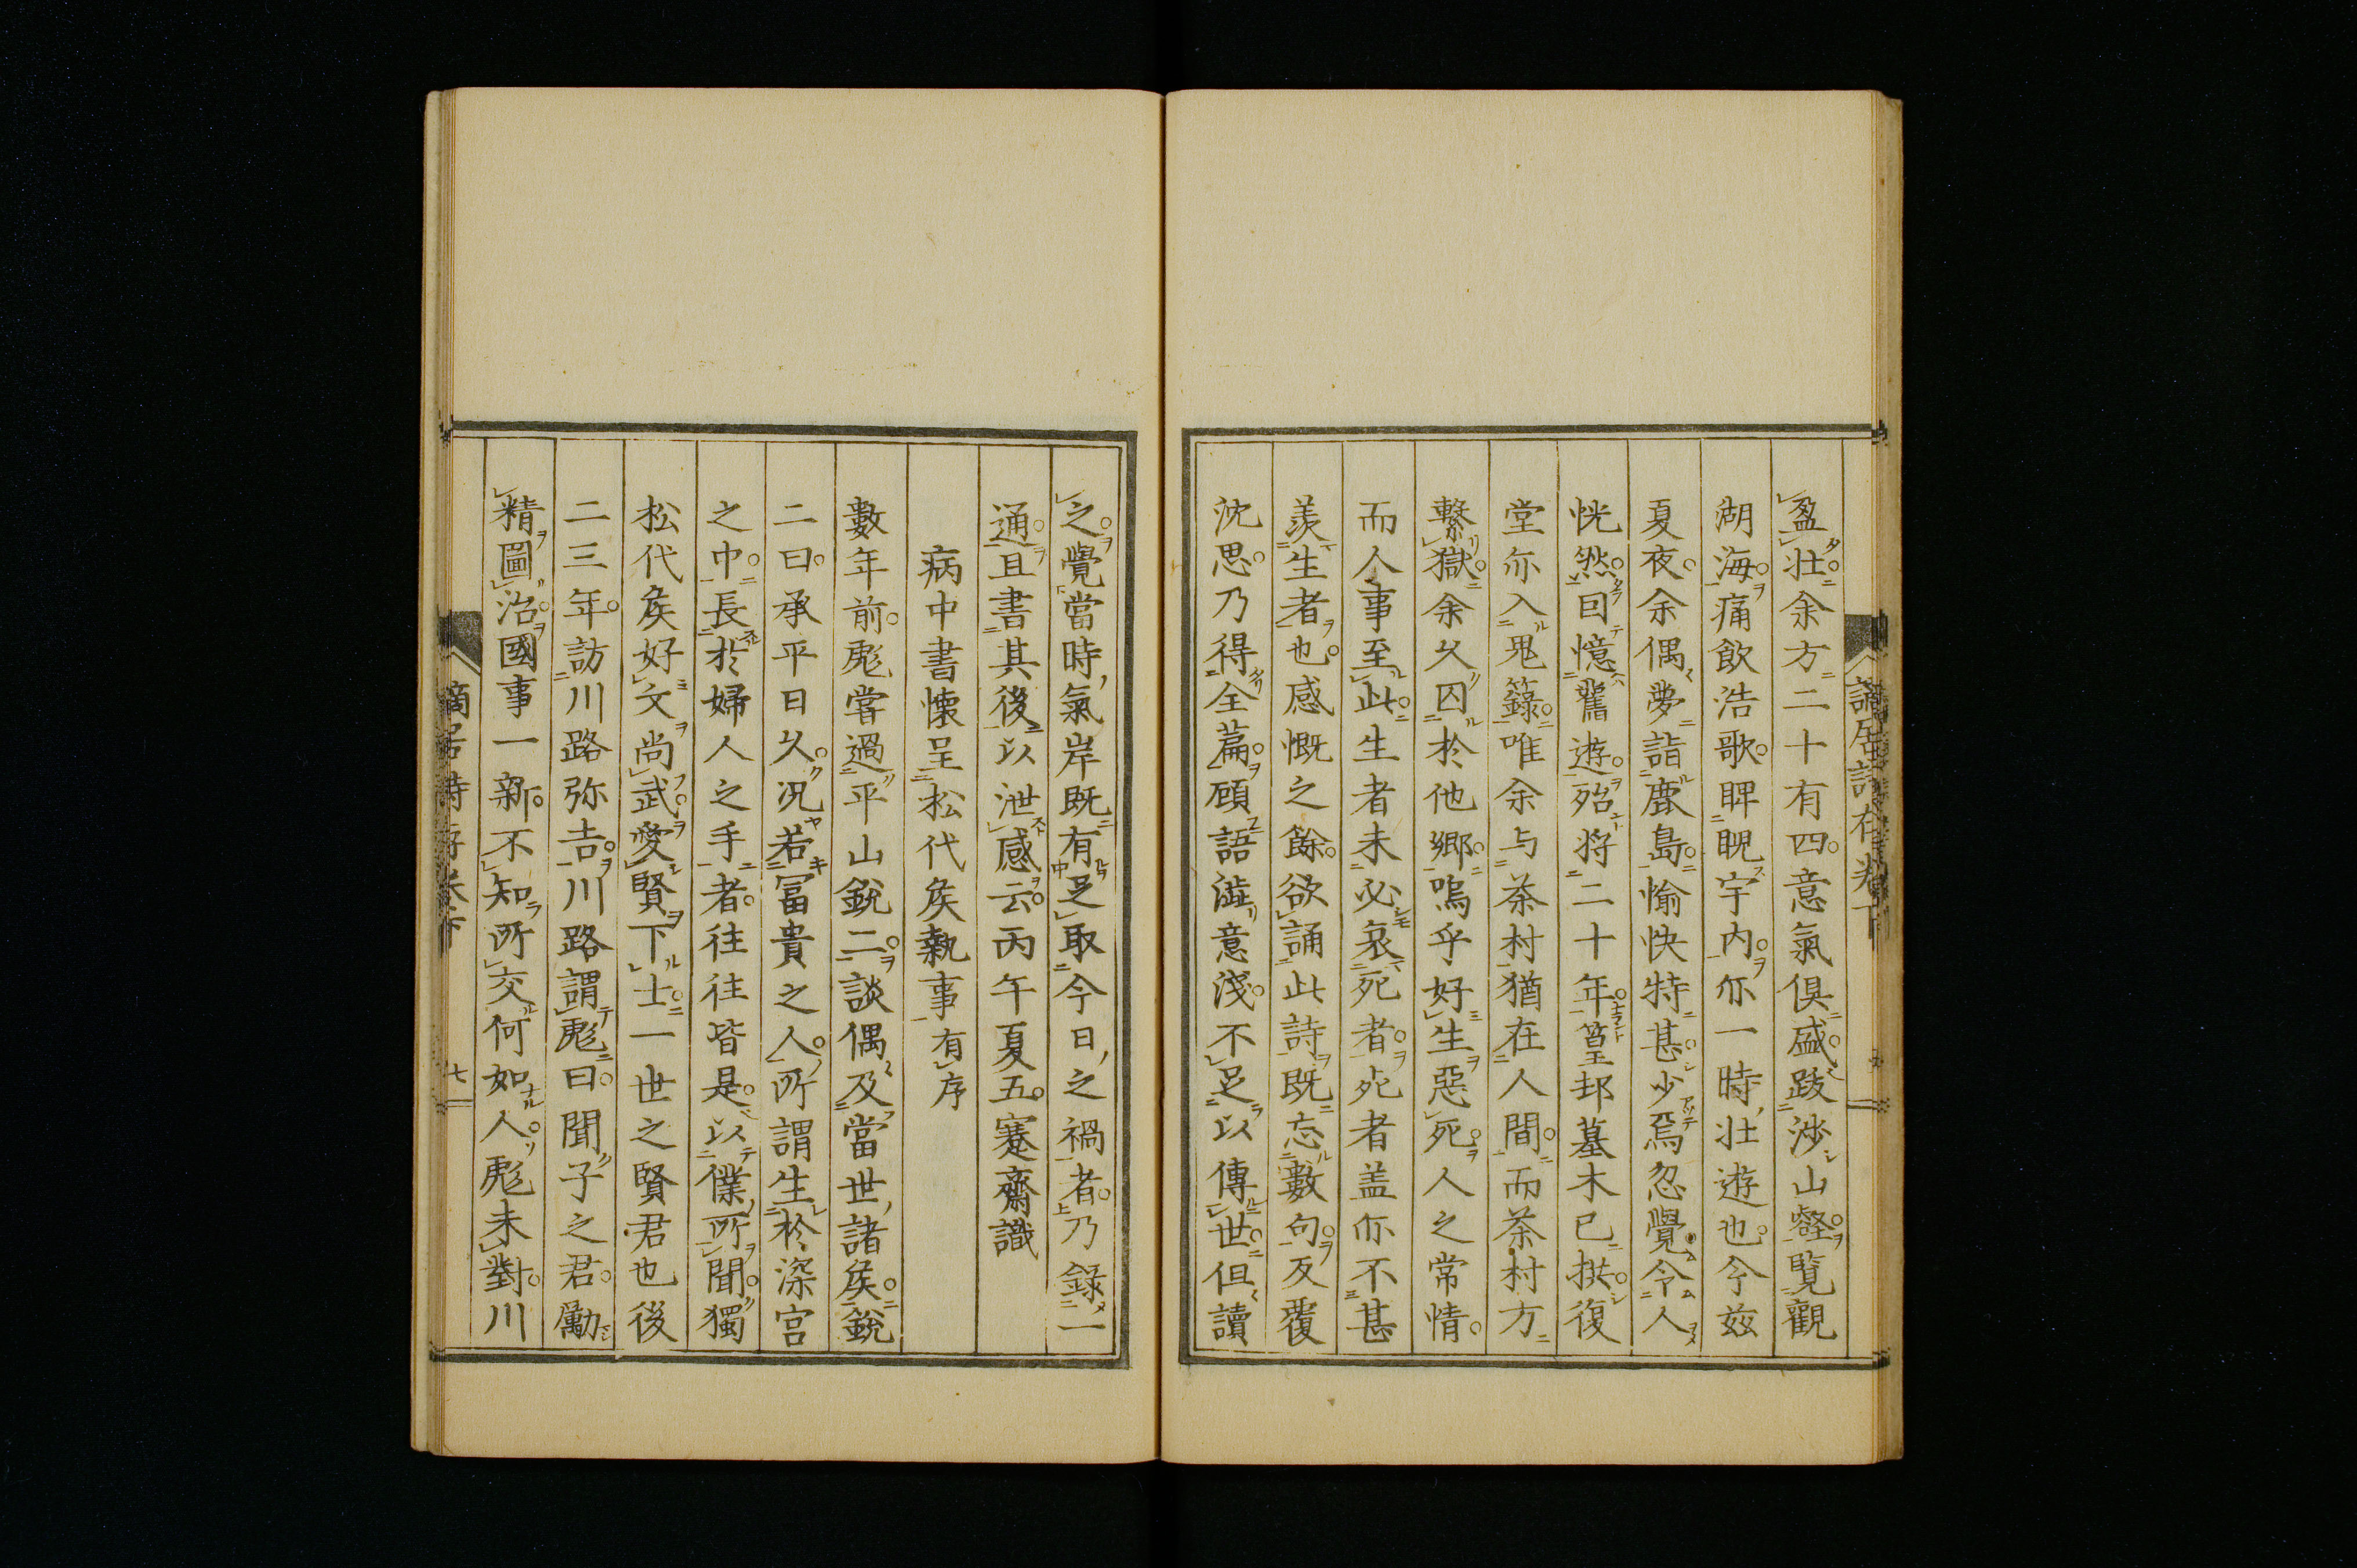 盈壯余方二十有四意氣倶盛跋渉山壑覧觀
湖海痛飲浩歌睥睨宇内亦一時壯遊也今玆
夏夜余偶夢詣鹿島愉快特甚少焉忽覺令人
恍然回憶舊遊殆將二十年篁邨墓木已拱復
堂亦入鬼籙唯余与茶村猶在人間而茶村方
繫獄余久囚於他郷嗚乎好生惡死人之常情
而人事至此生者未必哀死者死者盖亦不甚
羨生者也感慨之餘欲誦此詩既忘數句反覆
沈思乃得全篇顧語澁意淺不足以傳世但讀
之覺當時氣岸既有足取今日之禍者乃錄一
通且書其後以泄感云丙午夏五蹇齋識
病中書懷呈松代矦執事有序
數年前彪嘗過平山鋭二談偶及當世諸矦鋭
二曰承平日久况若冨貴之人所謂生於深宮
之中長於婦人之手者往往皆是以僕所聞獨
松代矦好文尚武愛賢下士一世之賢君也後
二三年訪川路弥吉川路謂彪曰聞子之君勵
精圖治國事一新不知所交何如人彪未對川
謫居詩存卷下
七